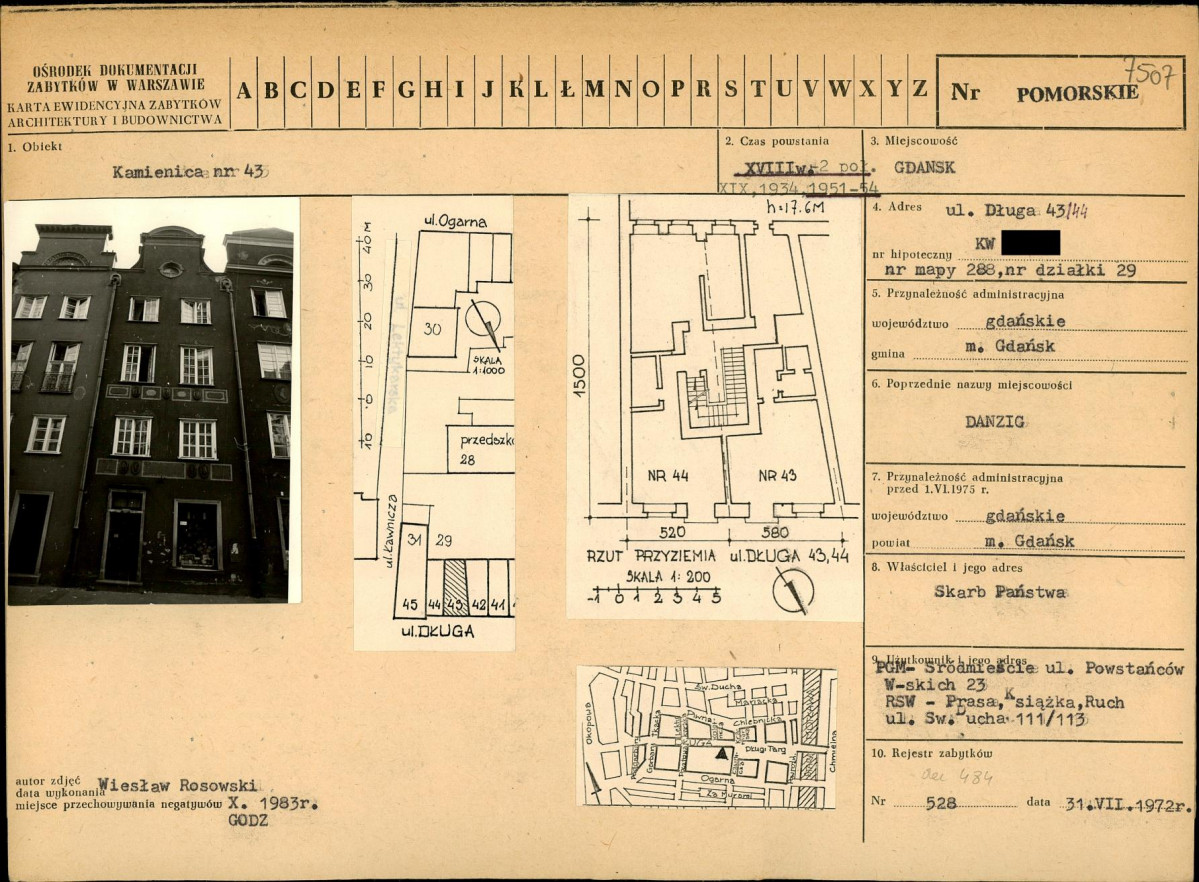 OŚRODEK DOKUMENTACJI
ZABYTKÓW W WARSZAWIE
KARTA EWIDENCYJNA ZABYTKÓW
ARCHITEKTURY I BUDOWNICTWA
A B C D E F G H I J K L Ł M N O P R S T U V W X Y Z
Nr POMORSKIE 7507
1. Obiekt
Kamienica nr 43
2. Czas powstania
XVIIIw. 2 poł.
XIX,1934,1951-54
3. Miejscowość
GDAŃSK
4. Adres ul. Długa 43/44
KW
nr hipoteczny
nr mapy 288,nr działki 29
5. Przynależność administracyjna
województwo gdańskie
gmina m. Gdańsk
6. Poprzednie nazwy miejscowości
DANZIG
7. Przynależność administracyjna
przed 1.VI.1975 r.
województwo gdańskie
powiat m. Gdańsk
8. Właściciel i jego adres
Skarb Państwa
9. Użytkownik i jego adres
PGM- Śródmieście ul. Powstańców
W-skich 23
RSW - Prasa, Książka,Ruch
ul. Św. Ducha 111/113
10. Rejestr zabytków
484
Nr 528 data 31.VII.1972r.
ul. Ogarna
40 M
30
20
10
0
10
30
SKALA
1:1000
przedszko
28
ul. Ławnicza
31 29
45 44 43 42 41
ul. DŁUGA
h=17.6M
1500
NR 44 NR 43
520 580
RZUT PRZYZIEMIA ul. DŁUGA 43,44
SKALA 1: 200
-1 0 1 2 3 4 5
Św. Ducha
Mariacka
Piwna
Chlebnicka
Okopowa
Tkacka
Długa
Długi Targ
Garbary
Ogarna
Za Murami
Chmielna
autor zdjęć Wiesław Rosowski
data wykonania
miejsce przechowywania negatywów X. 1983r.
GODZ